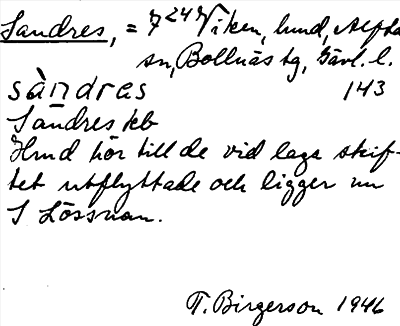 Sandres, = 7²⁴ Viken, hmd, Alfta
sn, Bollnäs tg, Gävl. l.
sàndres 143
Sandres kb
Hmd hör till de vid laga skif-
tet utflyttade och ligger nu
S Lössnan.
T. Birgerson 1946